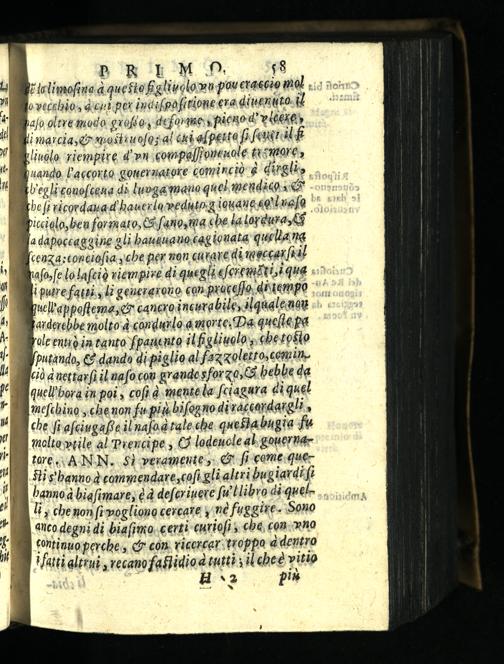 PRIMO. 58
de la limosina à questo figliuolo vn poueraccio mol
to vecchio, à cui per indispositione era diuenuto il
naso oltre modo grosso, deforme, pieno d'vlcere,
di marcia, & mostruoso; al cui aspetto si sentì il fi
gliuolo riempire d'vn compassioneuole tremore,
quando l'accorto gouernatore cominciò à dirgli,
ch'egli conosceua di lunga mano quel mendico, &
che si ricordaua d'hauerlo veduto giouane co'l naso
picciolo, ben formato, & sano, ma che la lordura, &
la dapoccaggine gli haueuano cagionata quella na
scenza: conciosia, che per non curare di moccarsi il
naso, se lo lasciò riempire di quegli escremẽti, i qua
li putrefatti, li generarono con processo di tempo
quell'appostema, & cancro incurabile, il quale non
tarderebbe molto à condurlo a morte. Da queste pa
role entrò in tanto spauento il figliuolo, che tosto
sputando, & dando di piglio al fazzoletto, comin
ciò à nettarsi il naso con grande sforzo, & hebbe da
quell'hora in poi, così à mente la sciagura di quel
meschino, che non fu più bisogno di raccordargli,
che si asciugasse il naso à tale che questa bugia fu
molto vtile al Prencipe, & lodeuole al gouerna-
tore. ANN. Sì veramente, & si come que-
sti s'hanno à commendare, così gli altri bugiardi si
hanno à biasimare, è à descriuere su'l libro di quel
li, che non si vogliono cercare, nè fuggire. Sono
anco degni di biasimo certi curiosi, che con vno
continuo perche, & con ricercar troppo à dentro
i fatti altrui, recano fastidio à tutti; il che è vitio
H 2 più